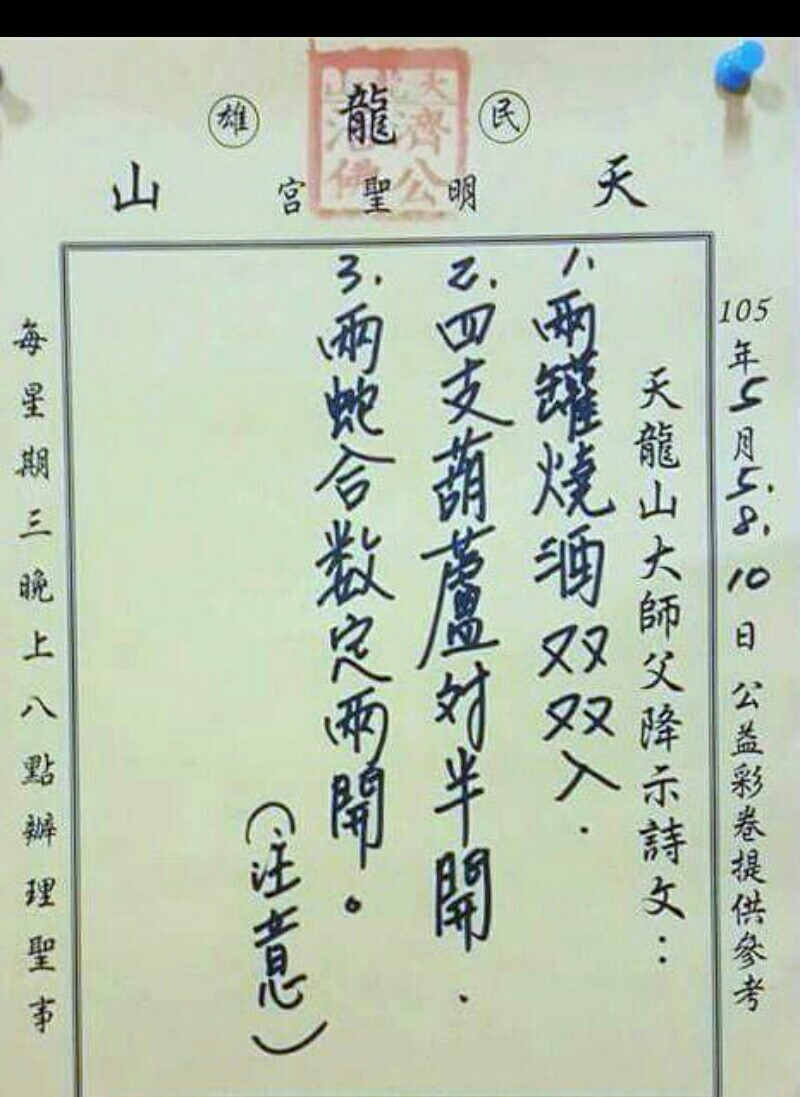 民雄
天龍山
明聖宮
天龍山
濟公
活佛
105年5月5.8.10日公益彩卷提供參考
天龍山大師父降示詩文：
1.兩罐燒酒双双入.
2.四支葫蘆対半開.
3.兩蛇合数定兩開。
（注意）
每星期三晚上八點辦理聖事